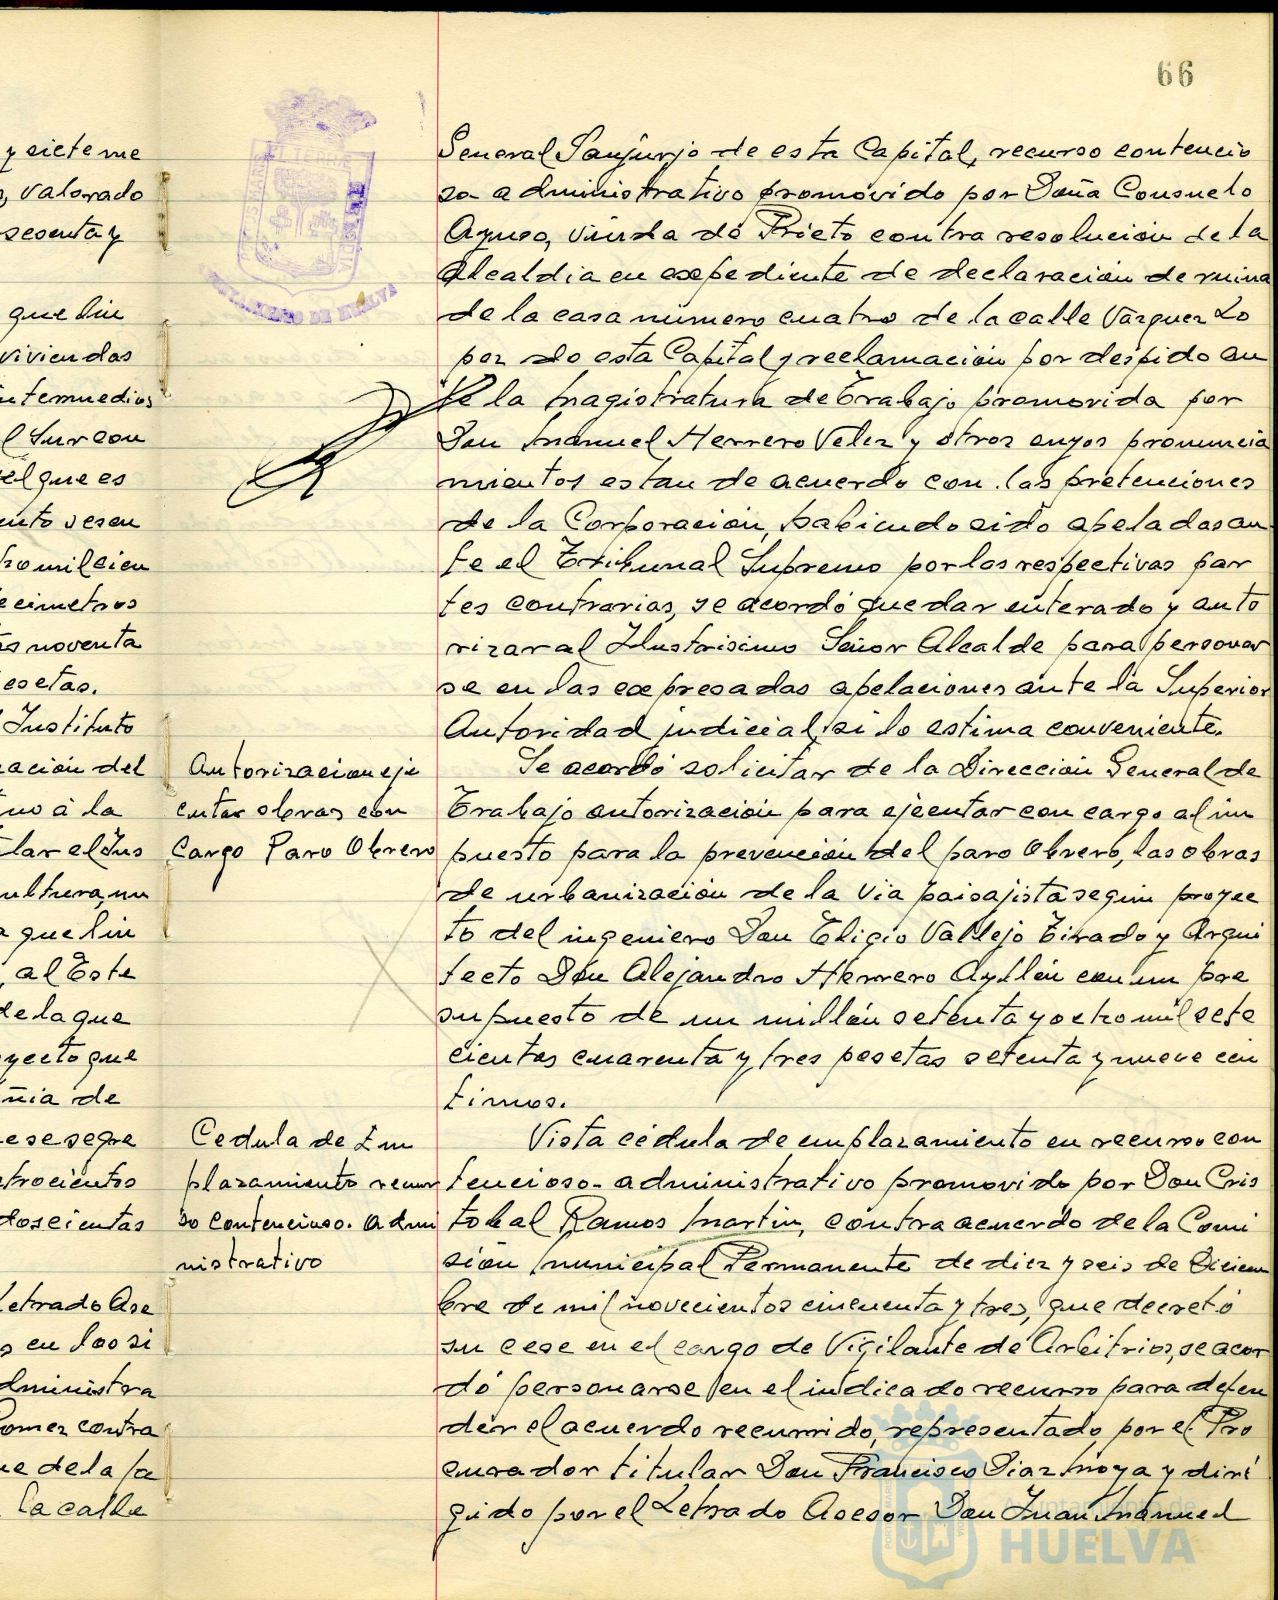 66
y siete me
, valorado
sesenta y
que lin
viviendas
intermedios
l Sur con
el que es
ento sesen
ho mil cien
ecimetros
as noventa
esetas.
Instituto
ración del
no à la
lar el Ins
ultura, un
a que lin
, al Este
de la que
oyecto que
añia de
e se segre
atrocientos
doscientas
Letrado Ase
s en los si
dministra
Gomez contra
ue de la fa
la calle
General Sanjurjo de esta Capital, recurso contencio
so administrativo promovido por Doña Consuelo
Ayuso, viuda de Prieto contra resolución de la
Alcaldia en expediente de declaración de ruina
de la casa número cuatro de la calle Vázquez Lo
pez de esta Capital y reclamación por despido an
te la Magistratura de Trabajo promovida por
Don Manuel Herrero Velez y otros cuyos pronuncia
mientos estan de acuerdo con las pretenciones
de la Corporación, habiendo sido apeladas an
te el Tribunal Supremo por las respectivas par
tes contrarias, se acordó quedar enterado y auto
rizar al Ilustrisimo Señor Alcalde para personar
se en las expresadas apelaciones ante la Superior
Autoridad judicial, si lo estima conveniente.
Autorización eje
cutar obras con
Cargo Paro Obrero
Se acordó solicitar de la Dirección General de
Trabajo autorización para ejecutar con cargo al im
puesto para la prevención del paro Obrero, las obras
de urbanización de la Via paisajista según proyec
to del ingeniero Don Eligio Vallejo Tirado y Arqui
tecto Don Alejandro Herrero Ayllón con un pre
supuesto de un millón setenta y ocho mil sete
cientas cuarenta y tres pesetas setenta y nueve cen
timos.
Cedula de Em
plazamiento recur
so Contencioso. admi
nistrativo
Vista cédula de emplazamiento en recurso con
tencioso-administrativo promovido por Don Cris
tobal Ramos Martin, contra acuerdo de la Comi
sión Municipal Permanente de diez y seis de Diciem
bre de mil novecientos cincuenta y tres, que decretó
su cese en el cargo de Vigilante de Arbitrios, se acor
dó personarse en el indicado recurso para defen
der el acuerdo recurrido, representado por el Pro
curador titular Don Francisco Diaz Moya y diri
gido por el Letrado Asesor Don Juan Manuel
AYUNTAMIENTO DE HUELVA
Ayuntamiento de
HUELVA